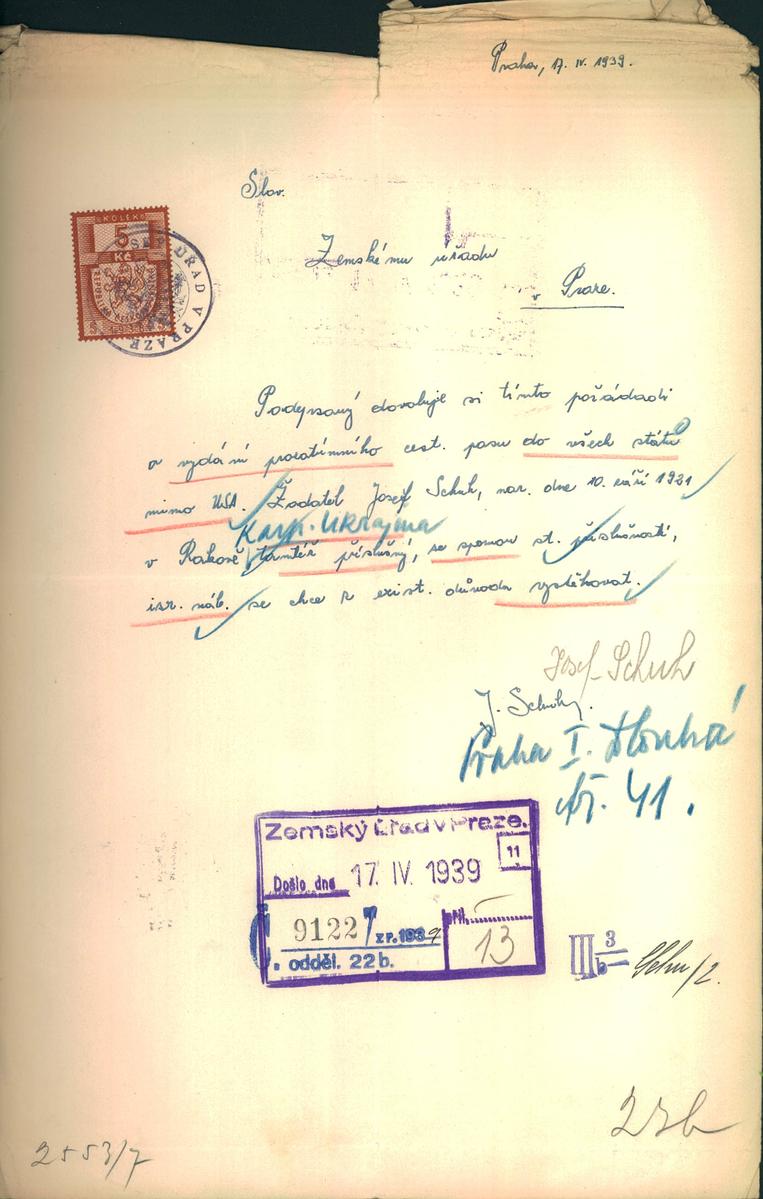 Praha, 17. IV. 1939.
Slov.
KOLEK
5
Kč
ÚŘAD V PRAZE
Zemskému úřadu
v Praze.
Podepsaný dovoluje si tímto požádati
o vydání prozatímního cest. pasu do všech států
mimo USA. Žadatel Josef Schuh, nar. dne 10. září 1921
Karp. Ukrajina
v Rakově tamtéž příslušný, se spornou st. příslušností,
isr. náb. se chce z exist. důvodů vystěhovat.
Josef Schuh
J. Schuh.
Praha I. Dlouhá
tř. 41.
Zemský úřad v Praze.
11
Došlo dne 17. IV 1939
9122/ z r. 1939
příl.
13
odděl. 22b.
III b 3
Schu/2.
22b
2553/7